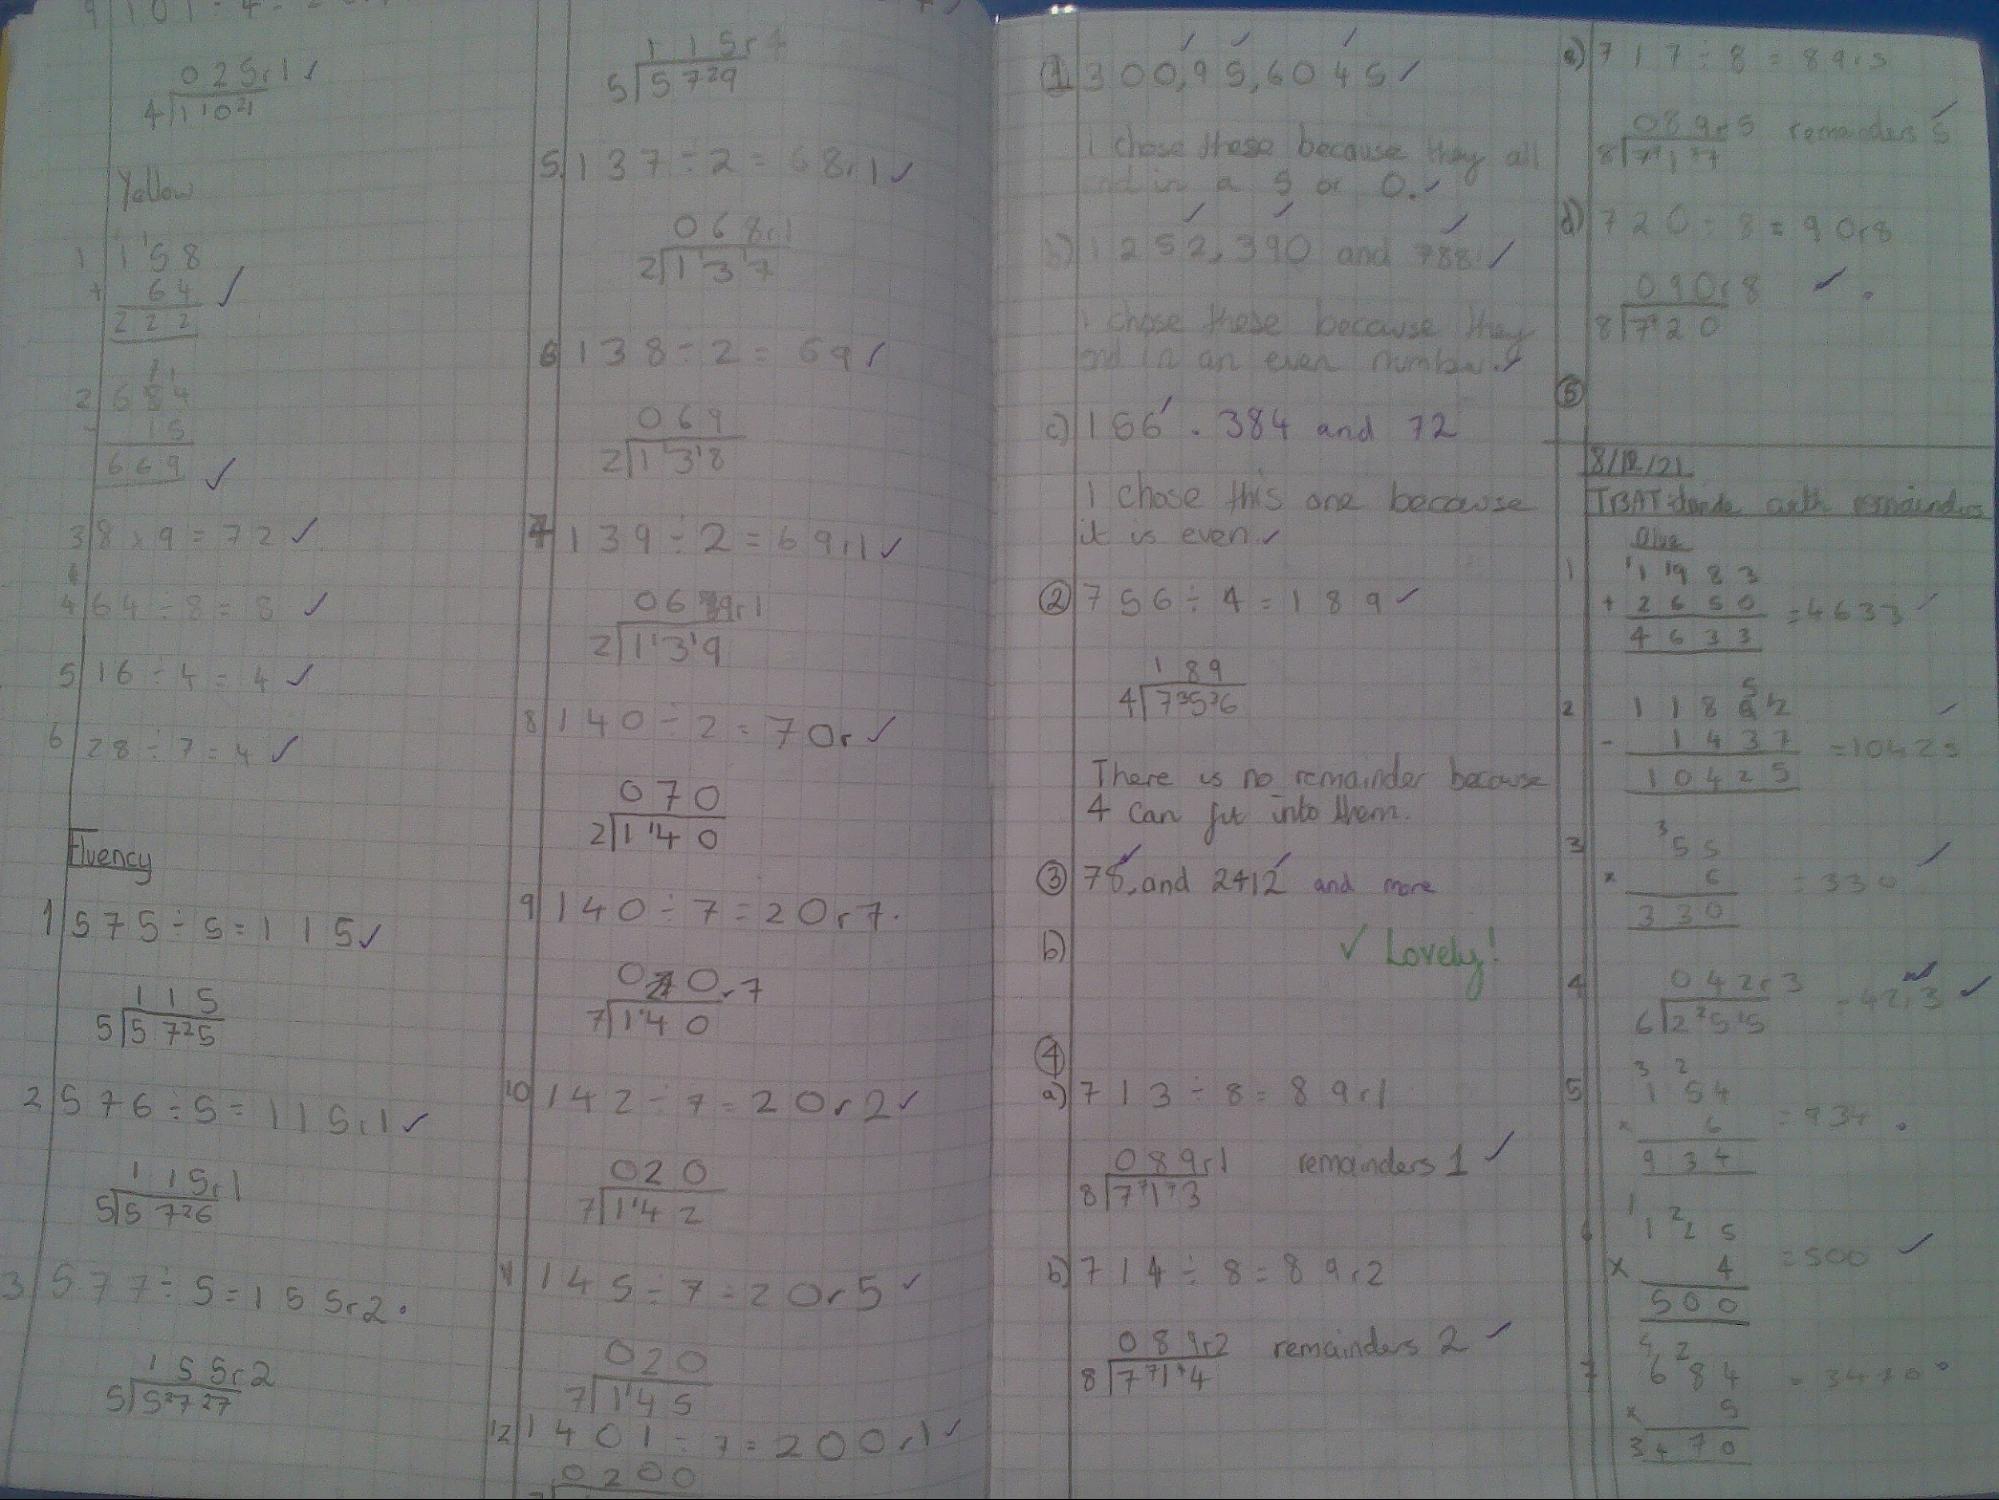 0 2 5 r 1 ✓
4 1 1 0 2 1
Yellow
1 1 5 8
+ 6 4 ✓
2 2 2
2 6 8 4
- 1 5
6 6 9 ✓
3 8 × 9 = 72 ✓
4 64 ÷ 8 = 8 ✓
5 16 ÷ 4 = 4 ✓
6 28 ÷ 7 = 4 ✓
Fluency
1 575 ÷ 5 = 115 ✓
1 1 5
5 5 7 2 5
2 576 ÷ 5 = 115 r 1 ✓
1 1 5 r 1
5 5 7 2 6
3 577 ÷ 5 = 155 r 2 .
1 5 5 r 2
5 5 2 7 2 7
1 1 5 r 4
5 5 7 2 9
5. 137 ÷ 2 = 68 r 1 ✓
0 6 8 r 1
2 1 1 3 1 7
6 138 ÷ 2 = 69 ✓
0 6 9
2 1 1 3 1 8
7 139 ÷ 2 = 69 r 1 ✓
0 6 9 r 1
2 1 1 3 1 9
8 140 ÷ 2 = 70 r ✓
0 7 0
2 1 1 4 0
9 140 ÷ 7 = 20 r 7 .
0 2 0 r 7
7 1 1 4 0
10 142 ÷ 7 = 20 r 2 ✓
0 2 0
7 1 1 4 2
11 145 ÷ 7 = 20 r 5 ✓
0 2 0
7 1 1 4 5
12 1401 ÷ 7 = 200 r 1 ✓
0 2 0 0
1 300, 95, 6045 ✓
I chose these because they all
end in a 5 or 0. ✓
b) 1252, 390 and 788 ✓
I chose these because they
end in an even number. ✓
c) 156 . 384 and 72
I chose this one because
it is even ✓
2 756 ÷ 4 = 189 ✓
1 8 9
4 7 3 5 3 6
There is no remainder because
4 can fit into them.
3 78, and 2412 and more
b) ✓ Lovely!
4
a) 713 ÷ 8 = 89 r 1
0 8 9 r 1 remainders 1 ✓
8 7 7 1 7 3
b) 714 ÷ 8 = 89 r 2
0 8 9 r 2 remainders 2 ✓
8 7 7 1 7 4
717 ÷ 8 = 89 r 5
0 8 9 r 5 remainders 5
8 7 7 1 7 7
d) 720 ÷ 8 = 90 r 8
0 9 0 r 8 ✓ .
8 7 7 2 0
5
8/12/21
TBAT: divide with remainders
Blue
1 1 9 8 3
+ 2 6 5 0 = 4633 ✓
4 6 3 3
2 1 1 8 6 2
- 1 4 3 7 = 10425
1 0 4 2 5
3 5 5
× 6 = 330
3 3 0
4 0 4 2 r 3 = 42 r 3 ✓
6 2 2 5 1 5
5 1 5 4
× 6 = 934 .
9 3 4
6 1 2 5
× 4 = 500 ✓
5 0 0
7 6 8 4 = 3470
× 5
3 4 7 0